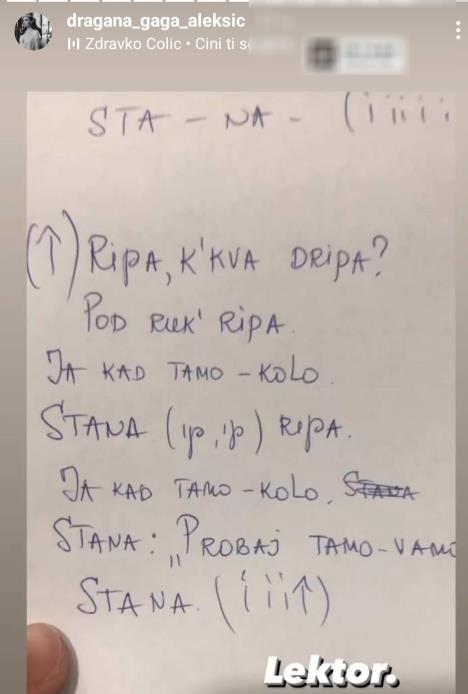 dragana_gaga_aleksic
Zdravko Colic • Cini ti s
STA - NA - (i iii i
(↑) RIPA, K'KVA DRIPA?
POD RUK' RIPA.
JA KAD TAMO - KOLO.
STANA (ip, ip) RIPA.
JA KAD TAMO - KOLO. STANA
STANA: „PROBAJ TAMO-VAMO
STANA. (i i i ↑)
Lektor.